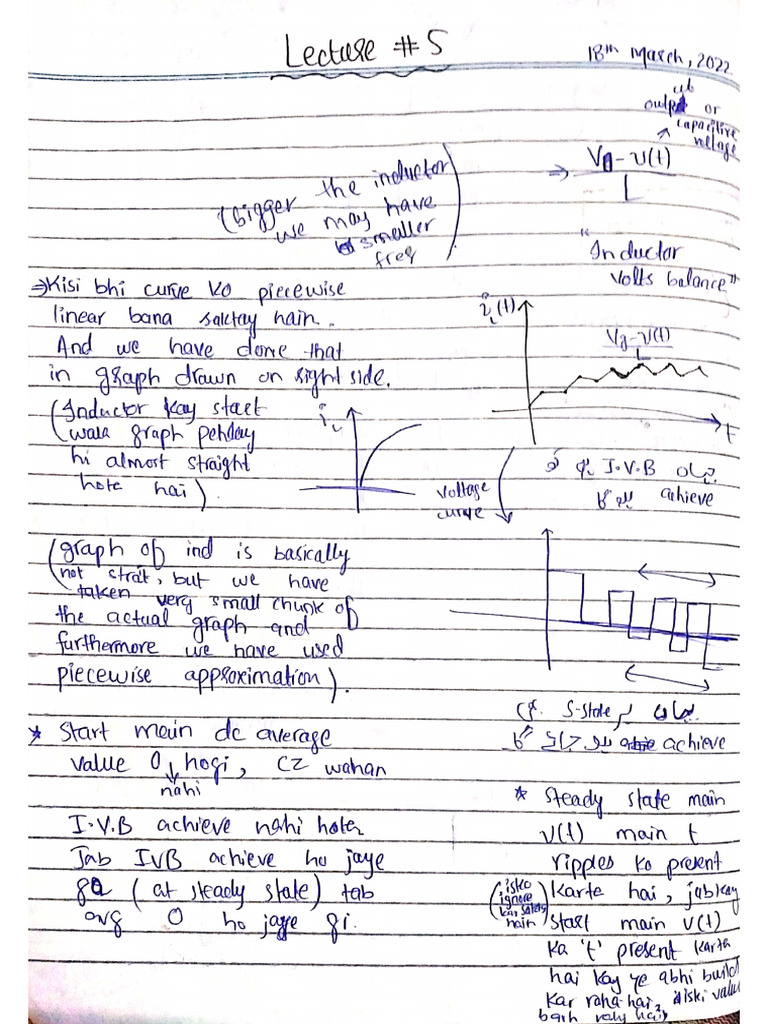 Lecture #5
18th March, 2022
output or
capacitive
voltage
⇒ Vg-v(t)
L
(bigger the inductor
we may have
smaller
freq)
"Inductor
volts balance"
⇒Kisi bhi curve ko piecewise
linear bana saktay hain.
And we have done that
in graph drawn on right side.
(Inductor kay start
wala graph pehlay
hi almost straight
hote hai).
iL
iL(t)
Vg-v(t)
L
t
voltage
curve
یہاں I.V.B
achieve
(graph of ind is basically
not strait, but we have
taken very small chunk of
the actual graph and
furthermore we have used
piecewise approximation).
یہاں S-state
achieve
* Start mein dc average
value 0 hogi, cz wahan
nahi
I.V.B achieve nahi hota
Jab IVB achieve ho jaye
ga (at steady state) tab
avg 0 ho jaye gi.
* Steady state main
v(t) main t
ripples ko present
karte hai, jabkay
(isko
ignore
kar saktay
hain)
start main v(t)
ka 't' present karta
hai kay ye abhi build
kar raha hai, iski value
barh rahy hai,